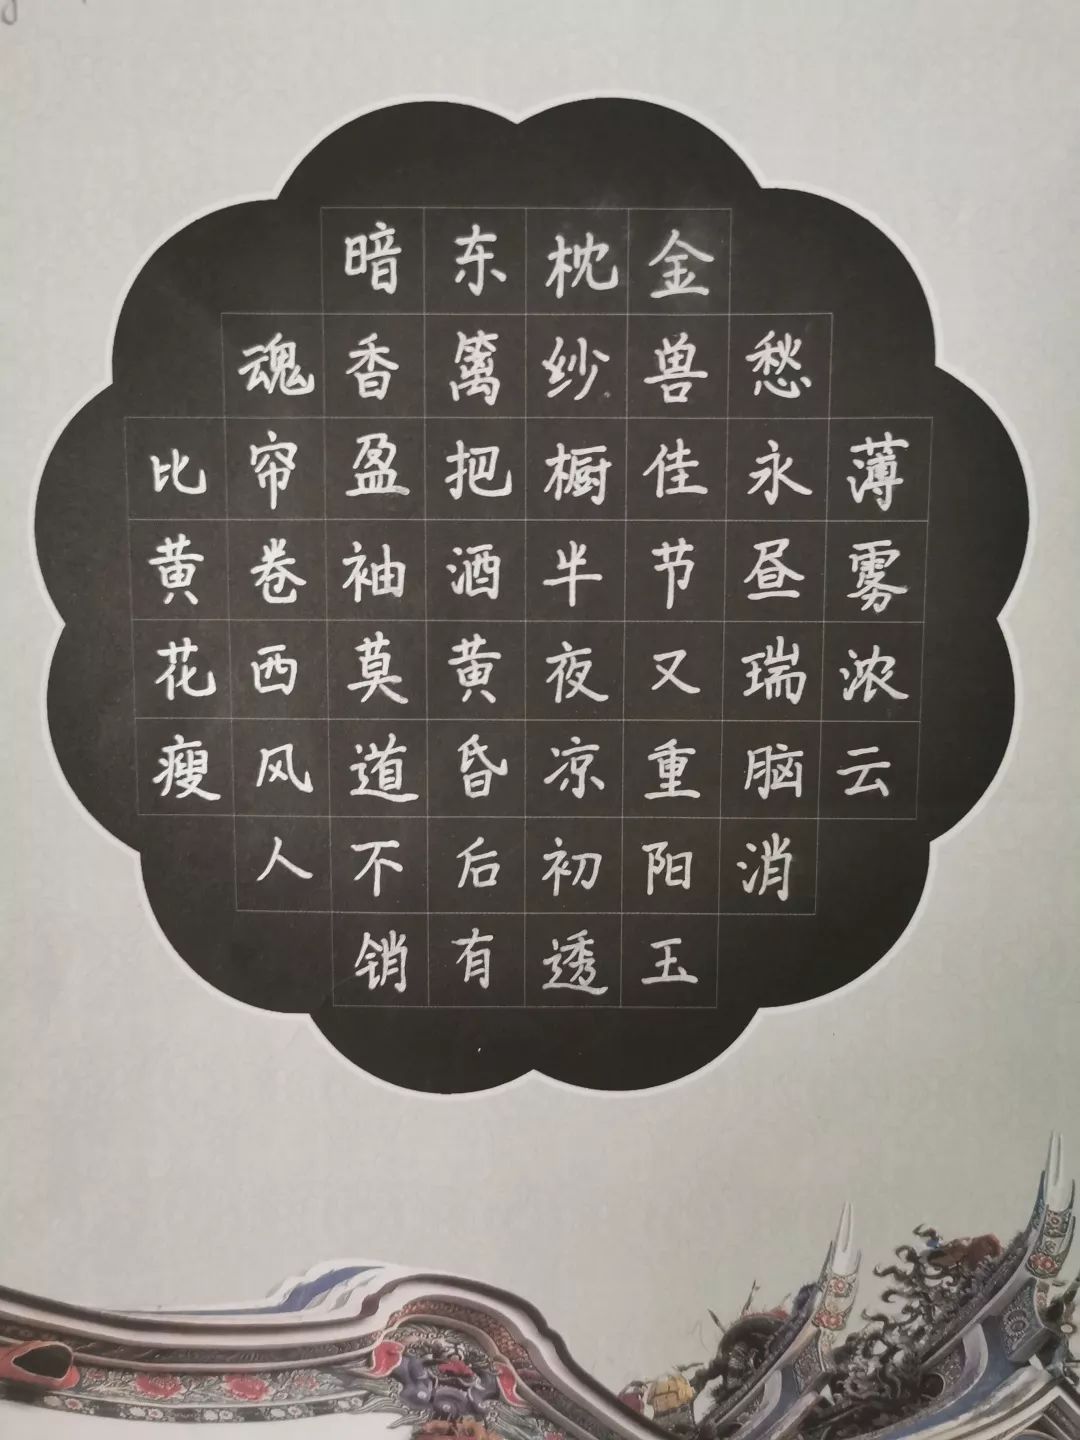 薄雾浓云
愁永昼瑞脑消
金兽佳节又重阳玉
枕纱橱半夜凉初透
东篱把酒黄昏后有
暗香盈袖莫道不销
魂帘卷西风人
比黄花瘦